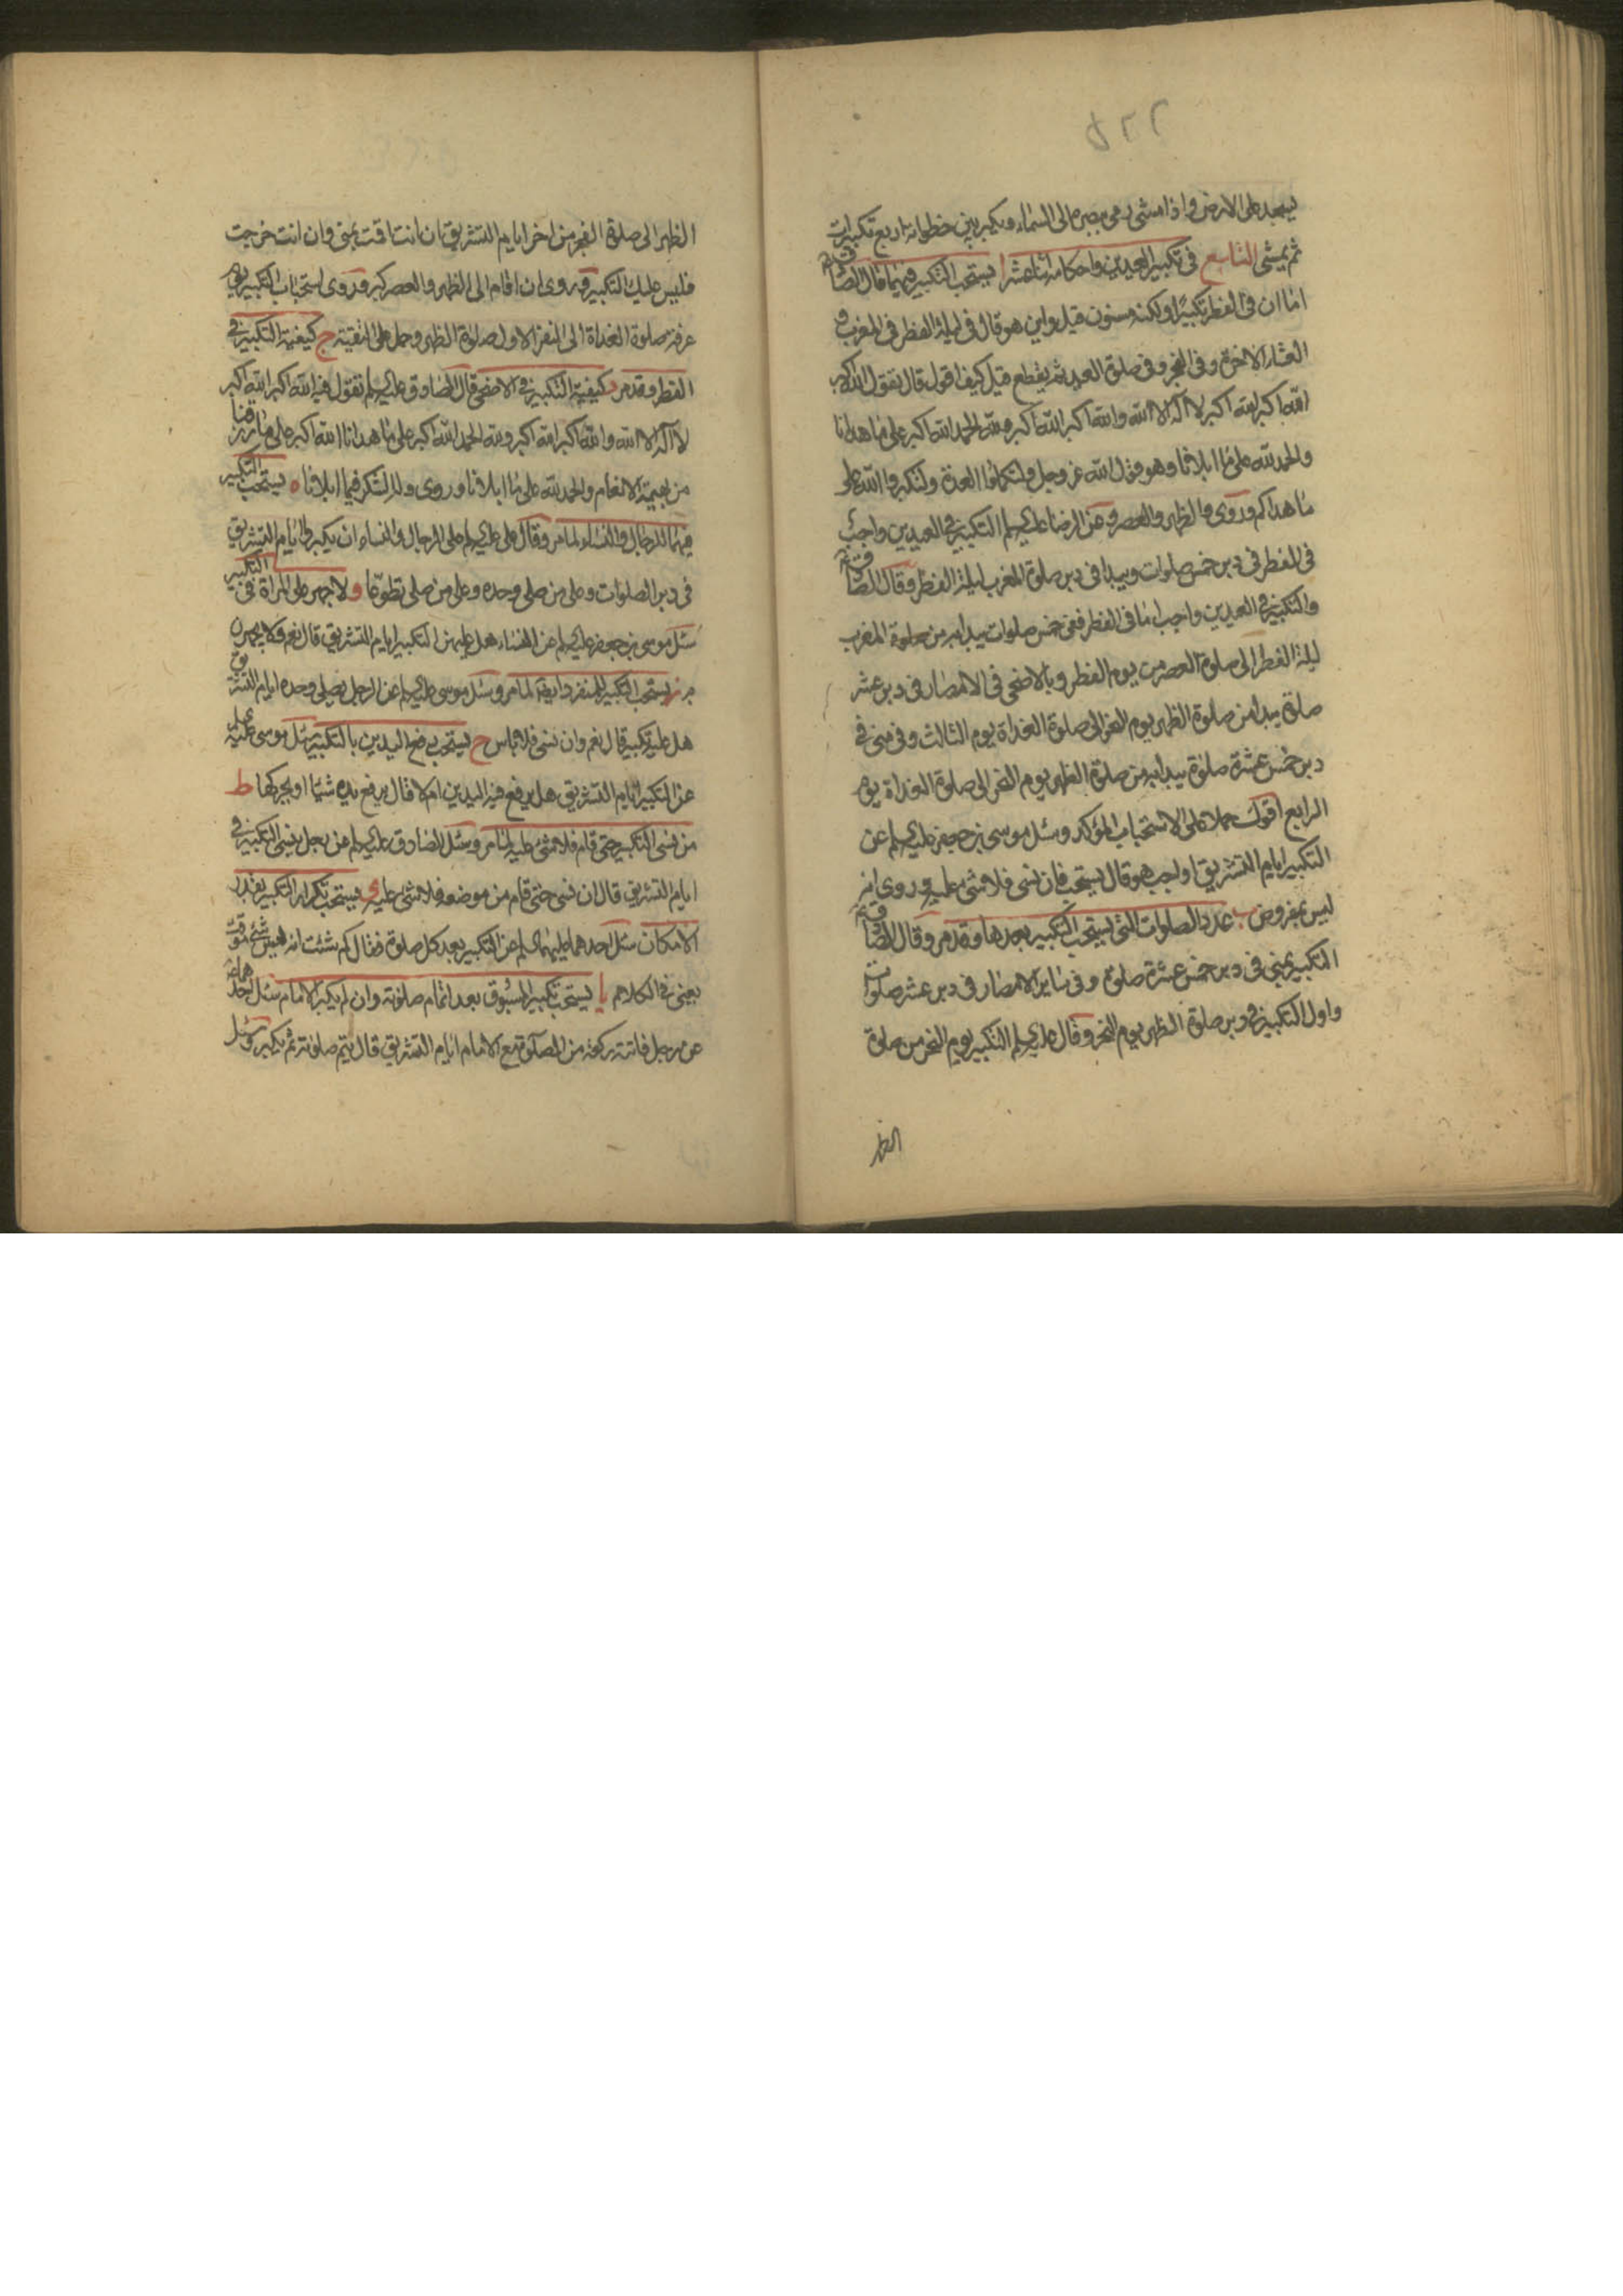 ٥٢٢
يسجد على الارض واذا مشى رمى ببصره الى السماء ويكبر بين خطواته اربع تكبيرات
ثم يمشى التاسع فى تكبير العيدين واحكامه اثنا عشر ا يستحب التكبير فيهما قال الصادق ع
اما ان فى الفطر تكبيرًا ولكنه مسنون قيل واين هو قال فى ليلة الفطر فى المغرب و
العشاء الاخرة وفى الفجر وفى صلوة العيد ثم يقطع قيل كيف اقول قال تقول الله اكبر
الله اكبر الله اكبر لا اله الا الله والله اكبر الله اكبر ولله الحمد الله اكبر على ما هدانا
والحمد لله على ما ابلانا وهو قول الله عز وجل ولتكملوا العدة ولتكبروا الله على
ما هداكم وروى والظهر والعصر وعن الرضا عليه السلم التكبير فى العيدين واجب
فى الفطر فى دبر خمس صلوات ويبدا فى دبر صلوة المغرب ليلة الفطر وقال الصادق ع
والتكبير فى العيدين واجب اما فى الفطر ففى خمس صلوات يبدا به من صلوة المغرب
ليلة الفطر الى صلوة العصر من يوم الفطر وبالاضحى فى الامصار فى دبر عشر
صلوة يبدا من صلوة الظهر يوم النحر الى صلوة الغداة يوم الثالث وفى منى فى
دبر خمس عشرة صلوة يبدا به من صلوة الظهر يوم النحر الى صلوة الغداة يوم
الرابع اقول حملا على الاستحباب المؤكد وسئل موسى بن جعفر عليه السلم عن
التكبير ايام التشريق اواجب هو قال يستحب فان نسى فلا شئ عليه وروى انه
ليس بمفروض ب عدد الصلوات التى يستحب التكبير بعدها وقد مر وقال الصادق ع
التكبير بمنى فى دبر خمس عشرة صلوة وفى سائر الامصار فى دبر عشر صلوات
واول التكبير فى دبر صلوة الظهر يوم النحر وقال عليه السلم التكبير يوم النحر من صلوة
الظهر
الظهر الى صلوة الفجر من اخر ايام التشريق ان انت اقمت بمنى وان انت خرجت
فليس عليك التكبير وروى ان اقام الى الظهر والعصر كبر وروى استحباب التكبير يوم
عرفة صلوة الغداة الى النفر الاول صلوة الظهر وحمل على التقية ج كيفية التكبير فى
الفطر وقد مر د كيفية التكبير فى الاضحى قال الصادق عليه السلم تقول فيه الله اكبر الله اكبر
لا اله الا الله والله اكبر الله اكبر ولله الحمد الله اكبر على ما هدانا الله اكبر على ما رزقنا
من بهيمة الانعام والحمد لله على ما ابلانا وروى ولله الشكر فيما ابلانا ه يستحب التكبير
فيهما للرجال والنساء لما مر وقال على عليه السلم على الرجال والنساء ان يكبروا ايام التشريق
فى دبر الصلوات وعلى من صلى وحده وعلى من صلى تطوعا و لا جهر على المراة فى التكبير
سئل موسى بن جعفر عليه السلم عن النساء هل عليهن التكبير ايام التشريق قال نعم ولا يجهرن
به ز يستحب التكبير للمنفرد ايضا لما مر وسئل موسى عليه السلم عن الرجل يصلى وحده ايام التشريق
هل عليه تكبير قال نعم وان نسى فلا باس ح يستحب رفع اليدين بالتكبير سئل موسى عليه السلم
عن التكبير ايام التشريق هل يرفع فيه اليدين ام لا قال يرفع يده شيئا او يحركها ط
من نسى التكبير حتى قام فلا شئ عليه لما مر وسئل الصادق عليه السلم عن رجل ينسى التكبير فى
ايام التشريق قال ان نسى حتى قام من موضعه فلا شئ عليه ى يستحب تكرار التكبير بقدر
الامكان سئل احدهما عليهما السلم عن التكبير بعد كل صلوة فقال كم شئت انه ليس شئ موقت
يعنى فى الكلام يا يستحب تكبير المسبوق بعد اتمام صلوته وان لم يكبر الامام سئل احدهما ع
عن رجل فاتته ركعة من الصلوة مع الامام ايام التشريق قال يتم صلوته ثم يكبر وسئل